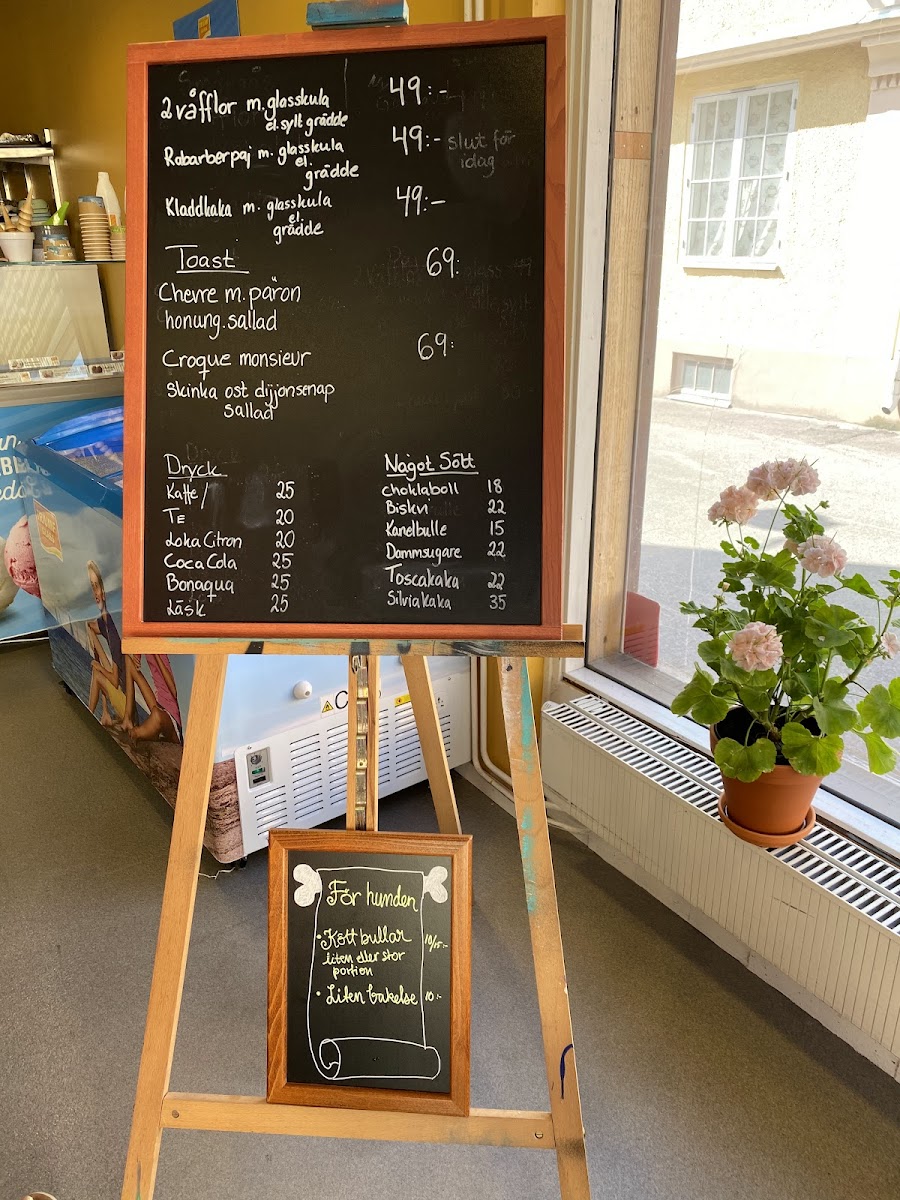 2 våfflor m. glasskula 49:-
el. sylt grädde
Rabarberpaj m. glasskula 49:- slut för
el. idag
grädde
Kladdkaka m. glasskula 49:-
el.
grädde
Toast 69:
Chevre m. päron
honung. sallad
Croque monsieur 69:
Skinka ost dijjonsenap
sallad
Dryck
Kaffe / 25
TE 20
Loka Citron 20
Coca Cola 25
Bonaqua 25
Läsk 25
Något Sött
choklaboll 18
Biskvi 22
Kanelbulle 15
Dammsugare 22
Toscakaka 22
Silviakaka 35
För hunden
• Kött bullar 10/15:-
liten eller stor
portion
• Liten bakelse 10:-